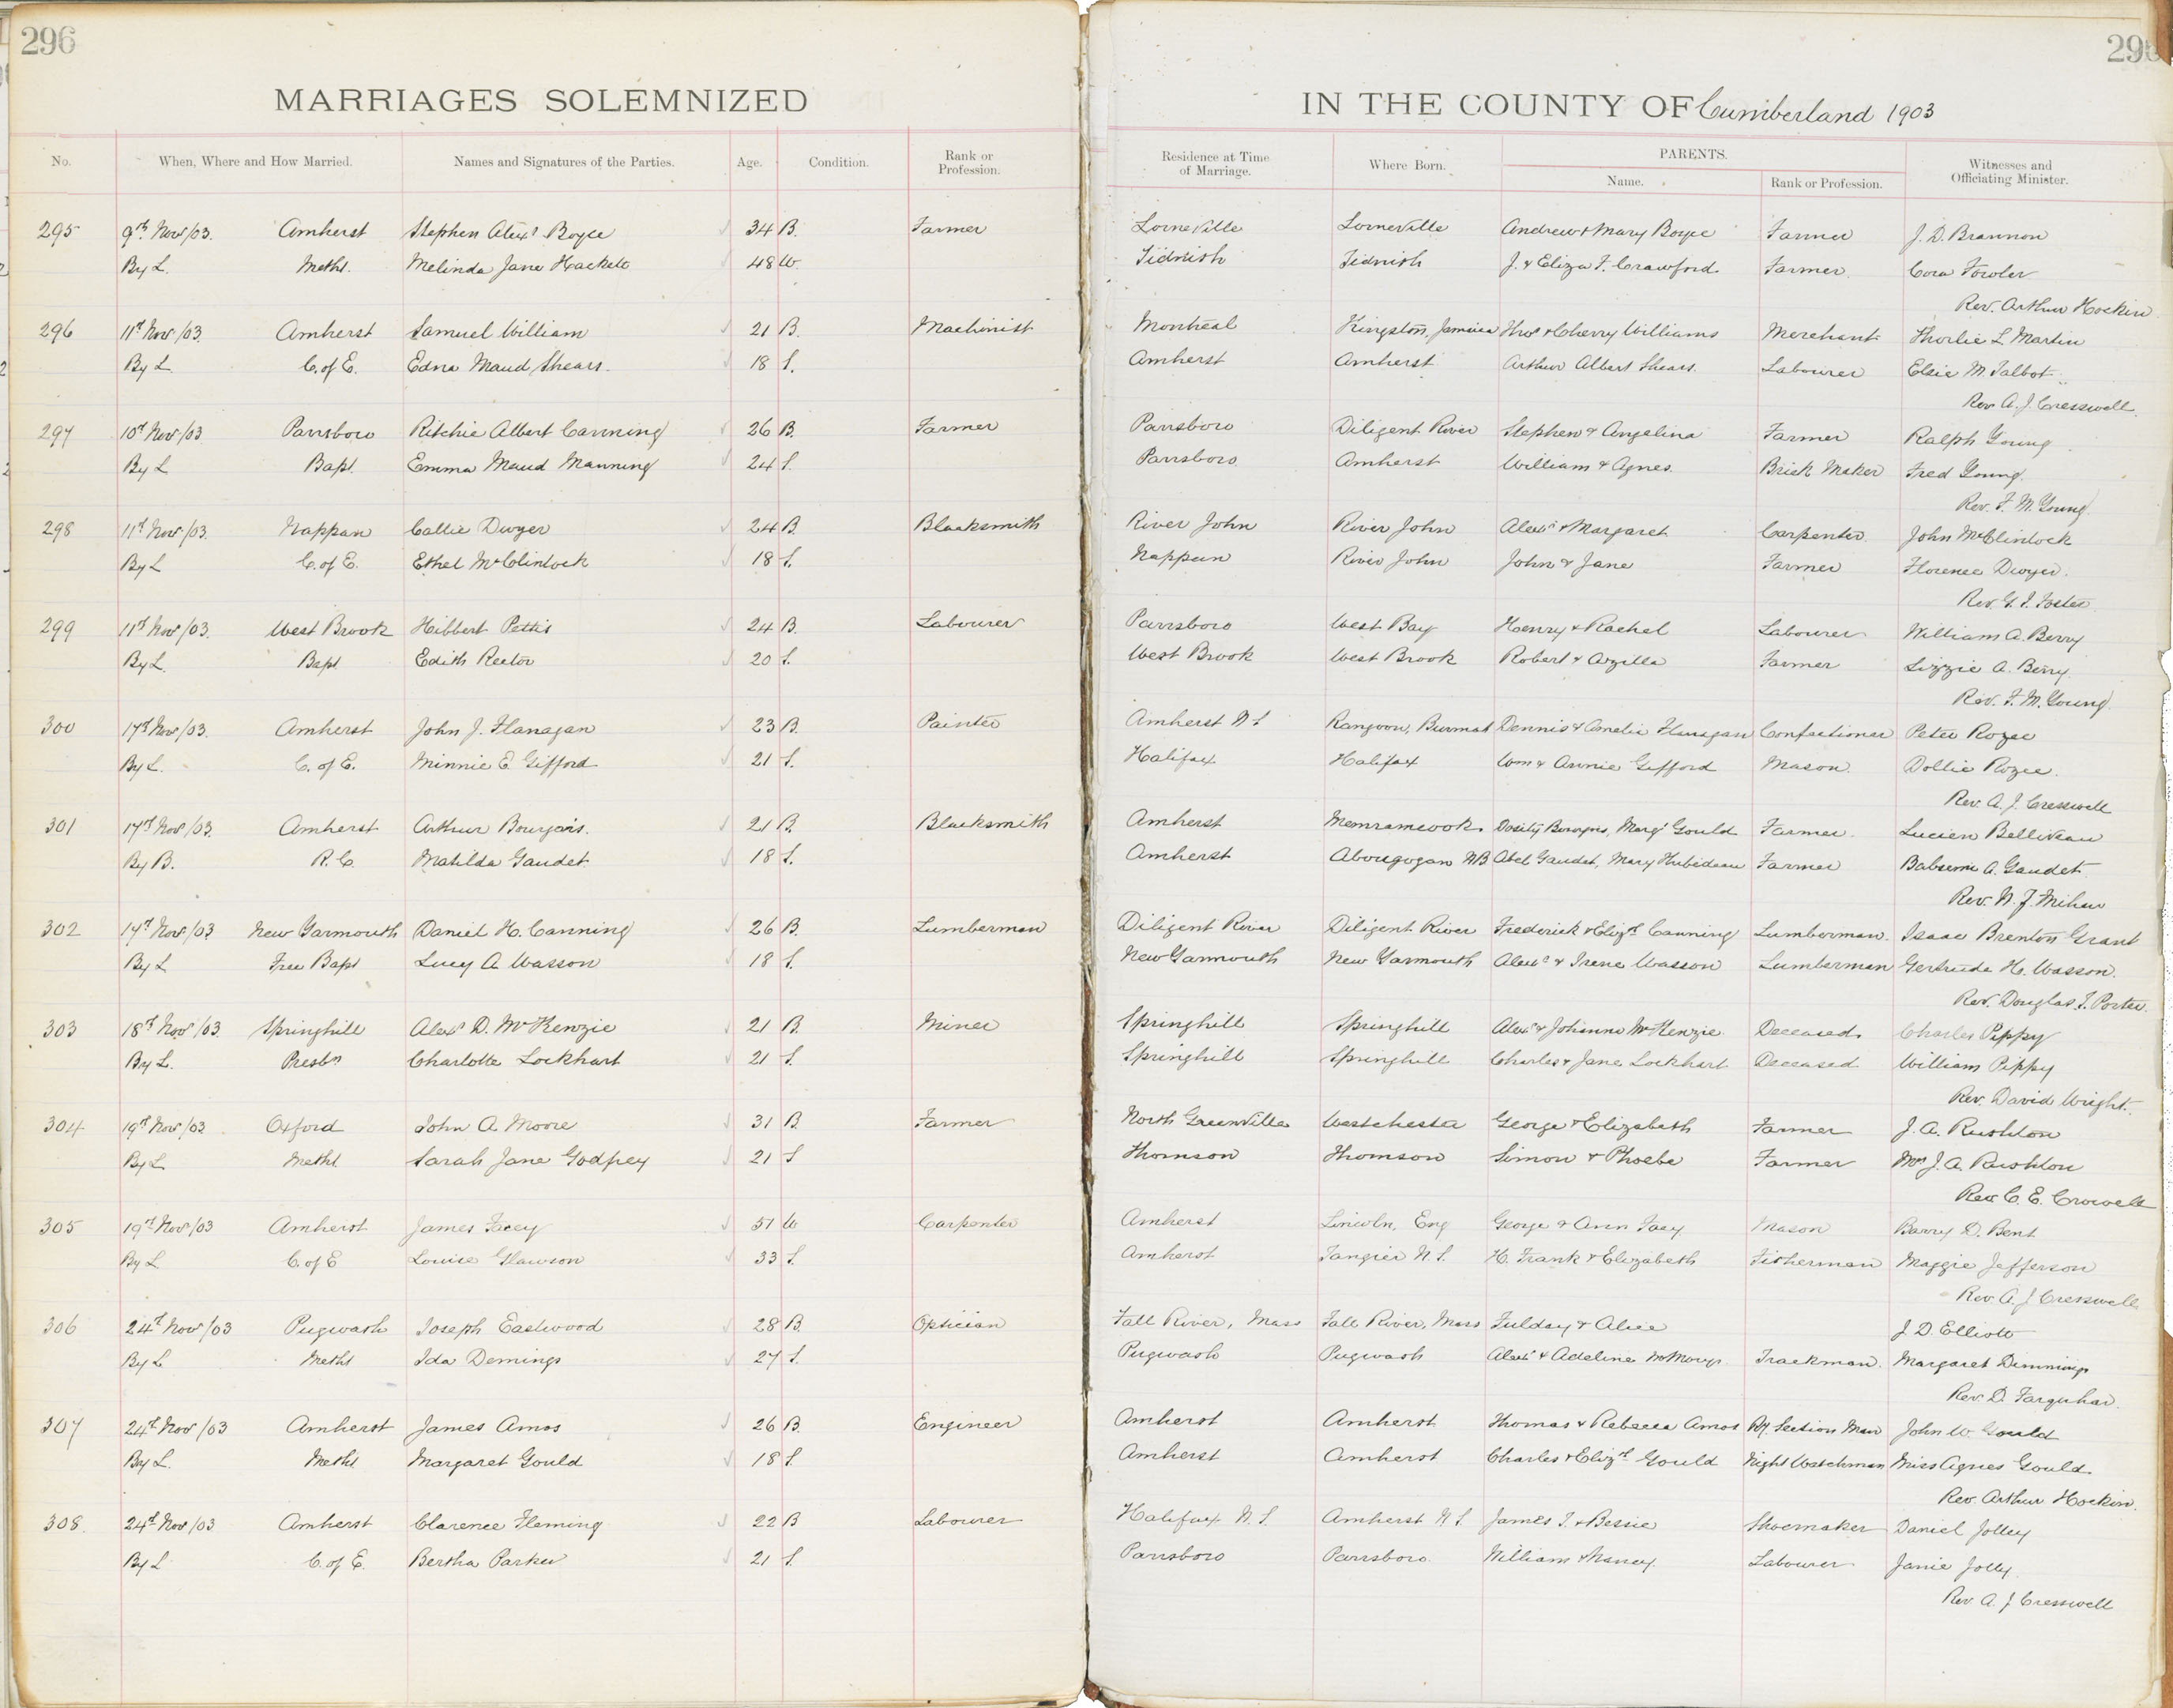 296
MARRIAGES SOLEMNIZED
No. When, Where and How Married. Names and Signatures of the Parties. Age. Condition. Rank or Profession.
295 9th Nov/03. Amherst Stephen Alexr Boyce 34 B. Farmer
By L. Metht. Melinda Jane Hackett 48 W.
296 11th Nov/03. Amherst Samuel William 21 B. Machinist
By L C. of E. Edna Maud Shears. 18 S.
297 10th Nov/03 Parrsboro Ritchie Albert Canning 26 B. Farmer
By L Bapt. Emma Maud Manning 24 S.
298 11th Nov/03. Nappan Callie Dwyer 24 B. Blacksmith
By L C. of E. Ethel McClintock 18 S.
299 11th Nov/03. West Brook Hibbert Pettis 24 B. Labourer
By L. Bapt Edith Rector 20 S.
300 17th Nov/03. Amherst John J. Flanagan 23 B. Painter
By L. C. of E. Minnie E Gifford 21 S.
301 17th Nov/03. Amherst Arthur Bourgois. 21 B. Blacksmith
By B. R.C. Matilda Gaudet 18 S.
302 14th Nov/03 New Yarmouth Daniel H. Canning 26 B. Lumberman
By L Free Bapt Lucy A Wasson 18 S.
303 18th Nov/03. Springhill Alexr D. McKenzie 21 B. Miner
By L. Presbn Charlotte Lockhart 21 S.
304 19th Nov/03 Oxford John A. Moore 31 B. Farmer
By L Metht Sarah Jane Godfrey 21 S
305 19th Nov/03 Amherst James Facey 51 W Carpenter
By L C. of E Louise Glawson 33 S.
306 24th Nov/03 Pugwash Joseph Eastwood 28 B. Optician
By L Metht Ida Demings 27 S.
307 24th Nov/03 Amherst James Amos 26 B. Engineer
By L. Metht Margaret Gould 18 S.
308. 24th Nov/03 Amherst Clarence Fleming 22 B Labourer
By L C. of E. Bertha Parker 21 S.
IN THE COUNTY OF Cumberland 1903
Residence at Time of Marriage. Where Born. PARENTS. Name. Rank or Profession. Witnesses and Officiating Minister.
Lorneville Lorneville Andrew & Mary Boyce Farmer J. D. Brannon
Tidnish Tidnish J. & Eliza F. Crawford Farmer. Cora Fowler
Rev. Arthur Hockin
Montreal Kingston, Jamaica Thos & Cherry Williams Merchant L Martin
Amherst Amherst Arthur Albert Shears. Labourer Elsie M. Talbot
Rev A. J. Cresswell
Parrsboro Diligent River Stephen & Angelina Farmer Ralph Young
Parrsboro Amherst William & Agnes Brick Maker Fred Young
Rev. F. M. Young
River John River John Alexr & Margaret Carpenter. John McClintock
Nappan River John John & Jane Farmer Florence Dwyer.
Rev. G. F. Foster
Parrsboro West Bay Henry & Rachel Labourer William A. Berry
West Brook West Brook Robert & Arzilla Farmer Lizzie A. Berry
Rev. F. M. Young
Amherst N S Rangoon, Burmah Dennis & Amelia Flanagan Confectioner Peter Rozee
Halifax Halifax Wm & Annie Gifford Mason. Dollie Rozee.
Rev. A. J. Cresswell
Amherst Memramcook Dosity Bourgois, Margt Gould Farmer Lucien Belliveau
Amherst Aboujagan NB Abel Gaudet, Mary Farmer A. Gaudet
Rev. N. J.
Diligent River Diligent River Frederick & Elizth Canning Lumberman. Isaac Brenton Grant
New Yarmouth New Yarmouth Alexr & Irene Wasson Lumberman Gertrude H. Wasson.
Rev. Douglas F. Porter
Springhill Springhill Alexr & Johanna McKenzie Deceased Charles Pippy
Springhill Springhill Charles & Jane Lockhart Deceased William Pippy
Rev. David Wright.
North Greenville Westchester George & Elizabeth Farmer J. A. Rushton
Thomson Thomson Simon & Phoebe Farmer Mrs J. A. Rushton
Rev C. E. Crowell
Amherst Lincoln, Eng George & Ann Facy Mason Barry D. Bent
Amherst Tangier N. S. H. Frank & Elizabeth Fisherman Maggie Jefferson
Rev. A. J Cresswell
Fall River, Mass Fall River, Mass & Alice J. D. Elliott
Pugwash Pugwash Alexr & Adeline Trackman. Margaret
Rev. D. Farquhar.
Amherst Amherst Thomas & Rebecca Amos Ry. Section Man John W Gould
Amherst Amherst Charles & Elizth Gould Night Watchman Miss Agnes Gould
Rev. Arthur Hockin.
Halifax N. S. Amherst N S. James T. & Bessie Shoemaker Daniel Jolley
Parrsboro Parrsboro. William & Nancy Labourer Janie Jolly
Rev. A. J Cresswell